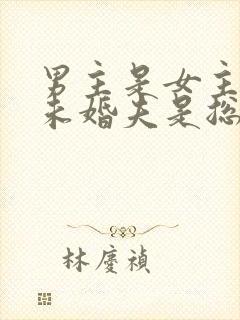 男主是女主
未婚夫是总
林慶禎